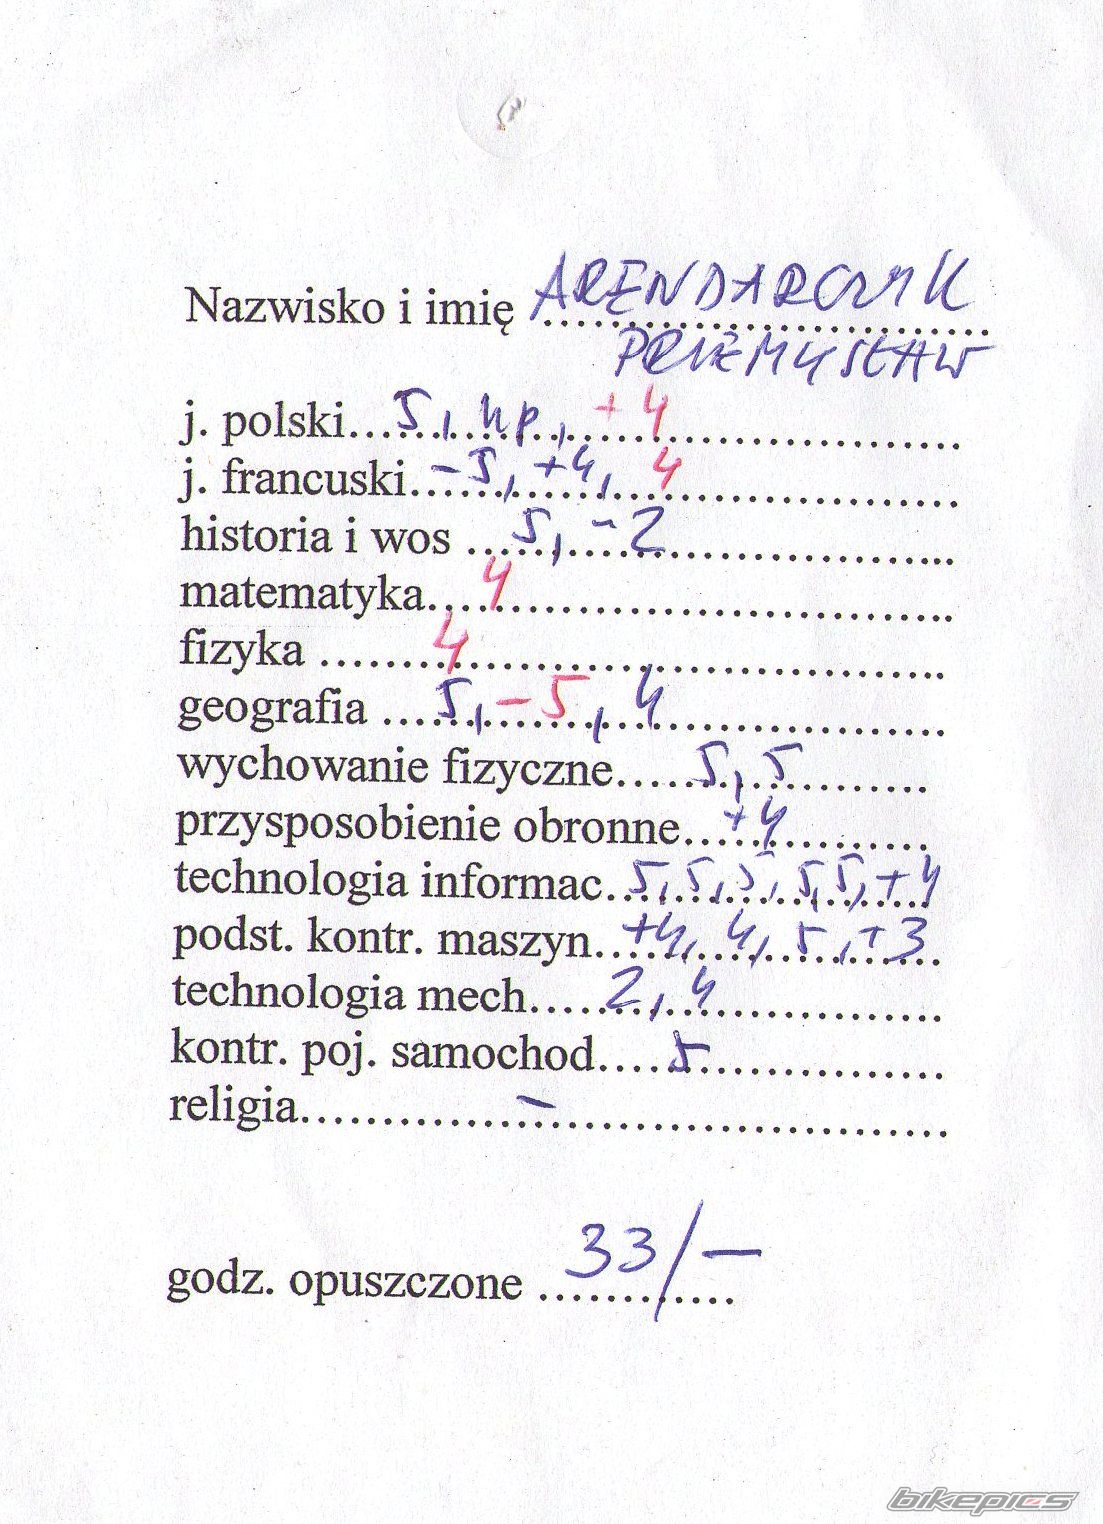 Nazwisko i imię ARENDARCZYK
PRZEMYSŁAW
j. polski 5, np, +4
j. francuski -5, +4, 4
historia i wos 5, -2
matematyka 4
fizyka 4
geografia 5, -5, 4
wychowanie fizyczne 5, 5
przysposobienie obronne +4
technologia informac. 5, 5, 5, 5, 5, +4
podst. kontr. maszyn +4, 4, 5, +3
technologia mech. 2, 4
kontr. poj. samochod. 5
religia -
godz. opuszczone 33/-
bikepics